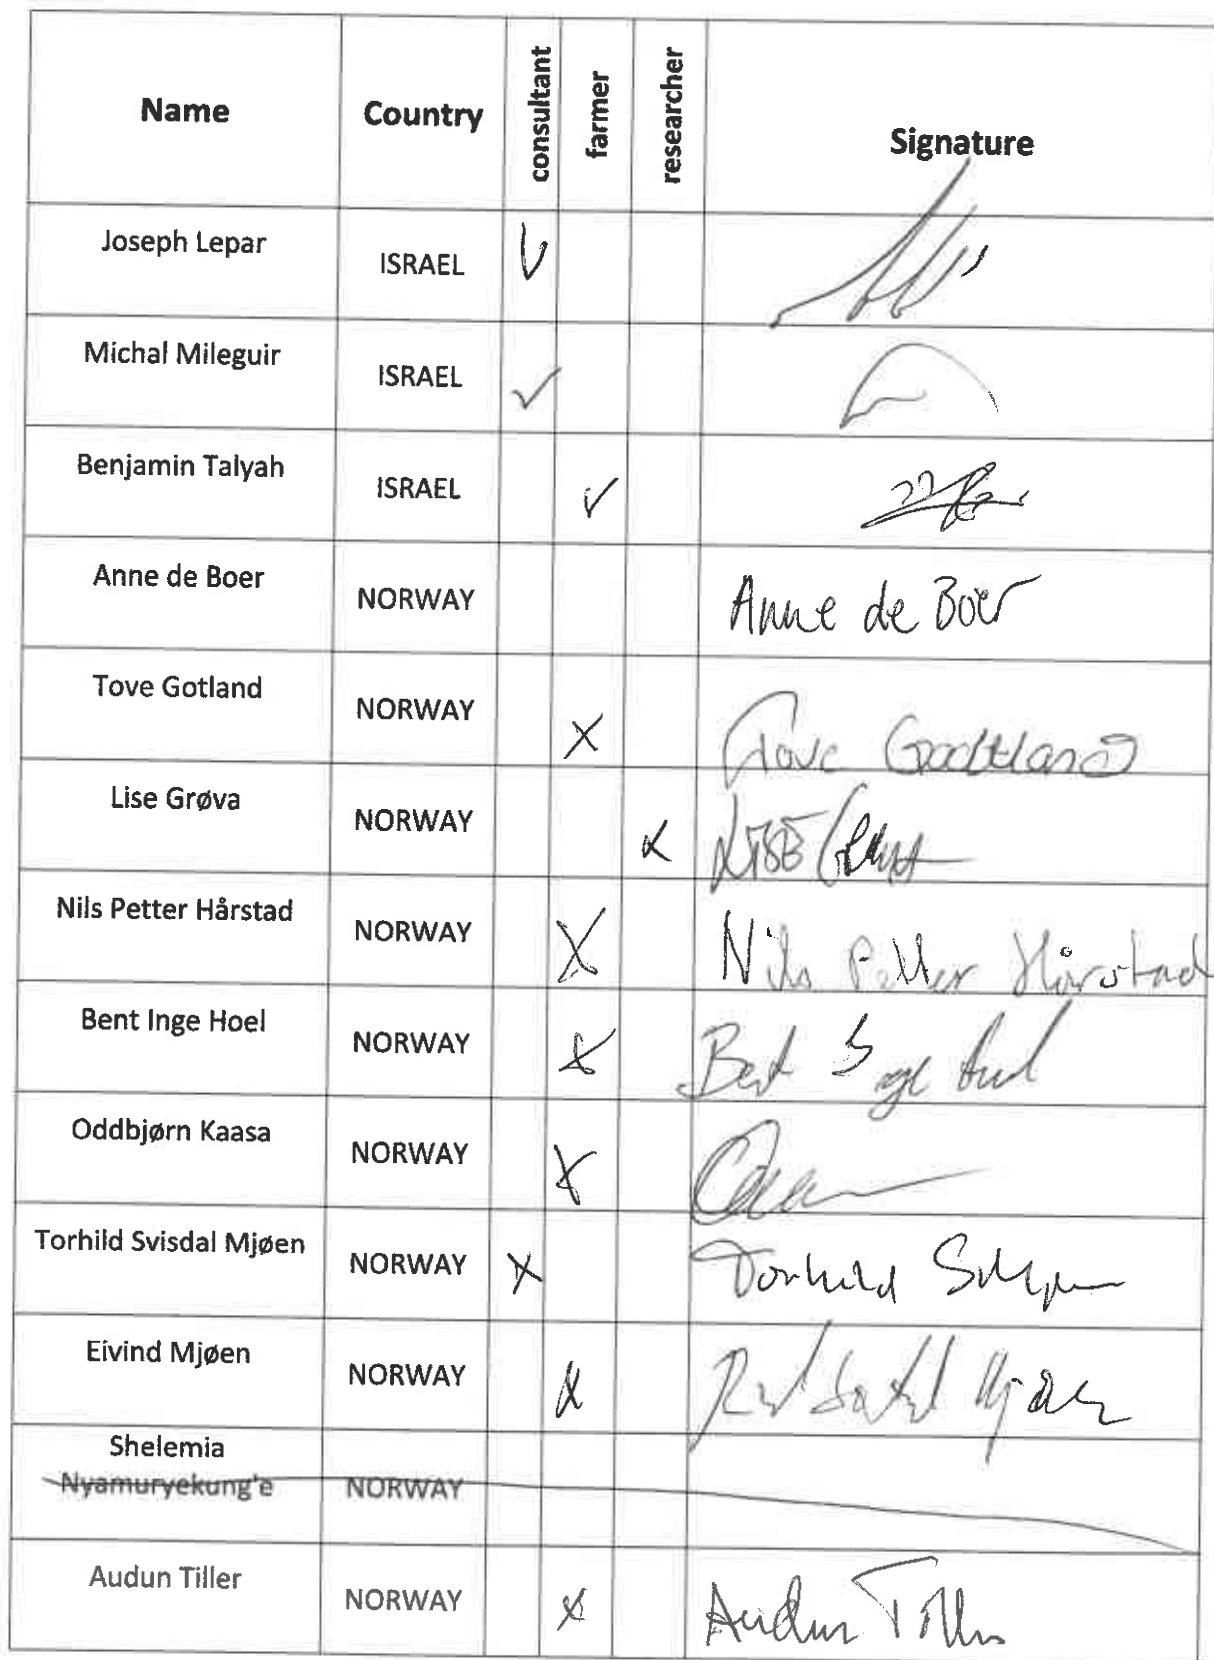 Name Country consultant farmer researcher Signature
Joseph Lepar ISRAEL ✓
Michal Mileguir ISRAEL ✓
Benjamin Talyah ISRAEL ✓
Anne de Boer NORWAY Anne de Boer
Tove Gotland NORWAY X Tove Goodtland
Lise Grøva NORWAY X LISE
Nils Petter Hårstad NORWAY X Nils Petter Hårstad
Bent Inge Hoel NORWAY X Bent Inge Hoel
Oddbjørn Kaasa NORWAY X
Torhild Svisdal Mjøen NORWAY X Torhild
Eivind Mjøen NORWAY X Mjøen
Shelemia
Nyamuryekung'e NORWAY
Audun Tiller NORWAY X Audun Tiller